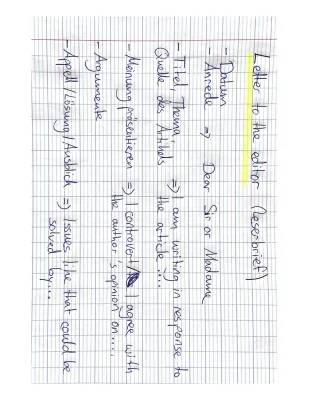 Letter to the editor (Leserbrief)
- Datum
- Anrede => Dear Sir or Madame
- Titel, Thema, => I am writing in response to
Quelle des Artikels the article "...
- Meinung präsentieren => I controvert / I agree with
the author's opinion on....
- Argumente
- Appell/Lösung/Ausblick => Issues like that could be
solved by....